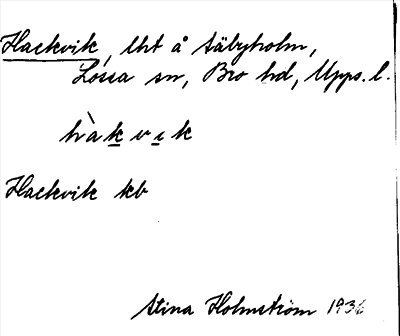 Hackvik, lht å Säbyholm,
Låssa sn, Bro hd, Upps. l.
hàkvik
Hackvik kb
Stina Holmström 1936